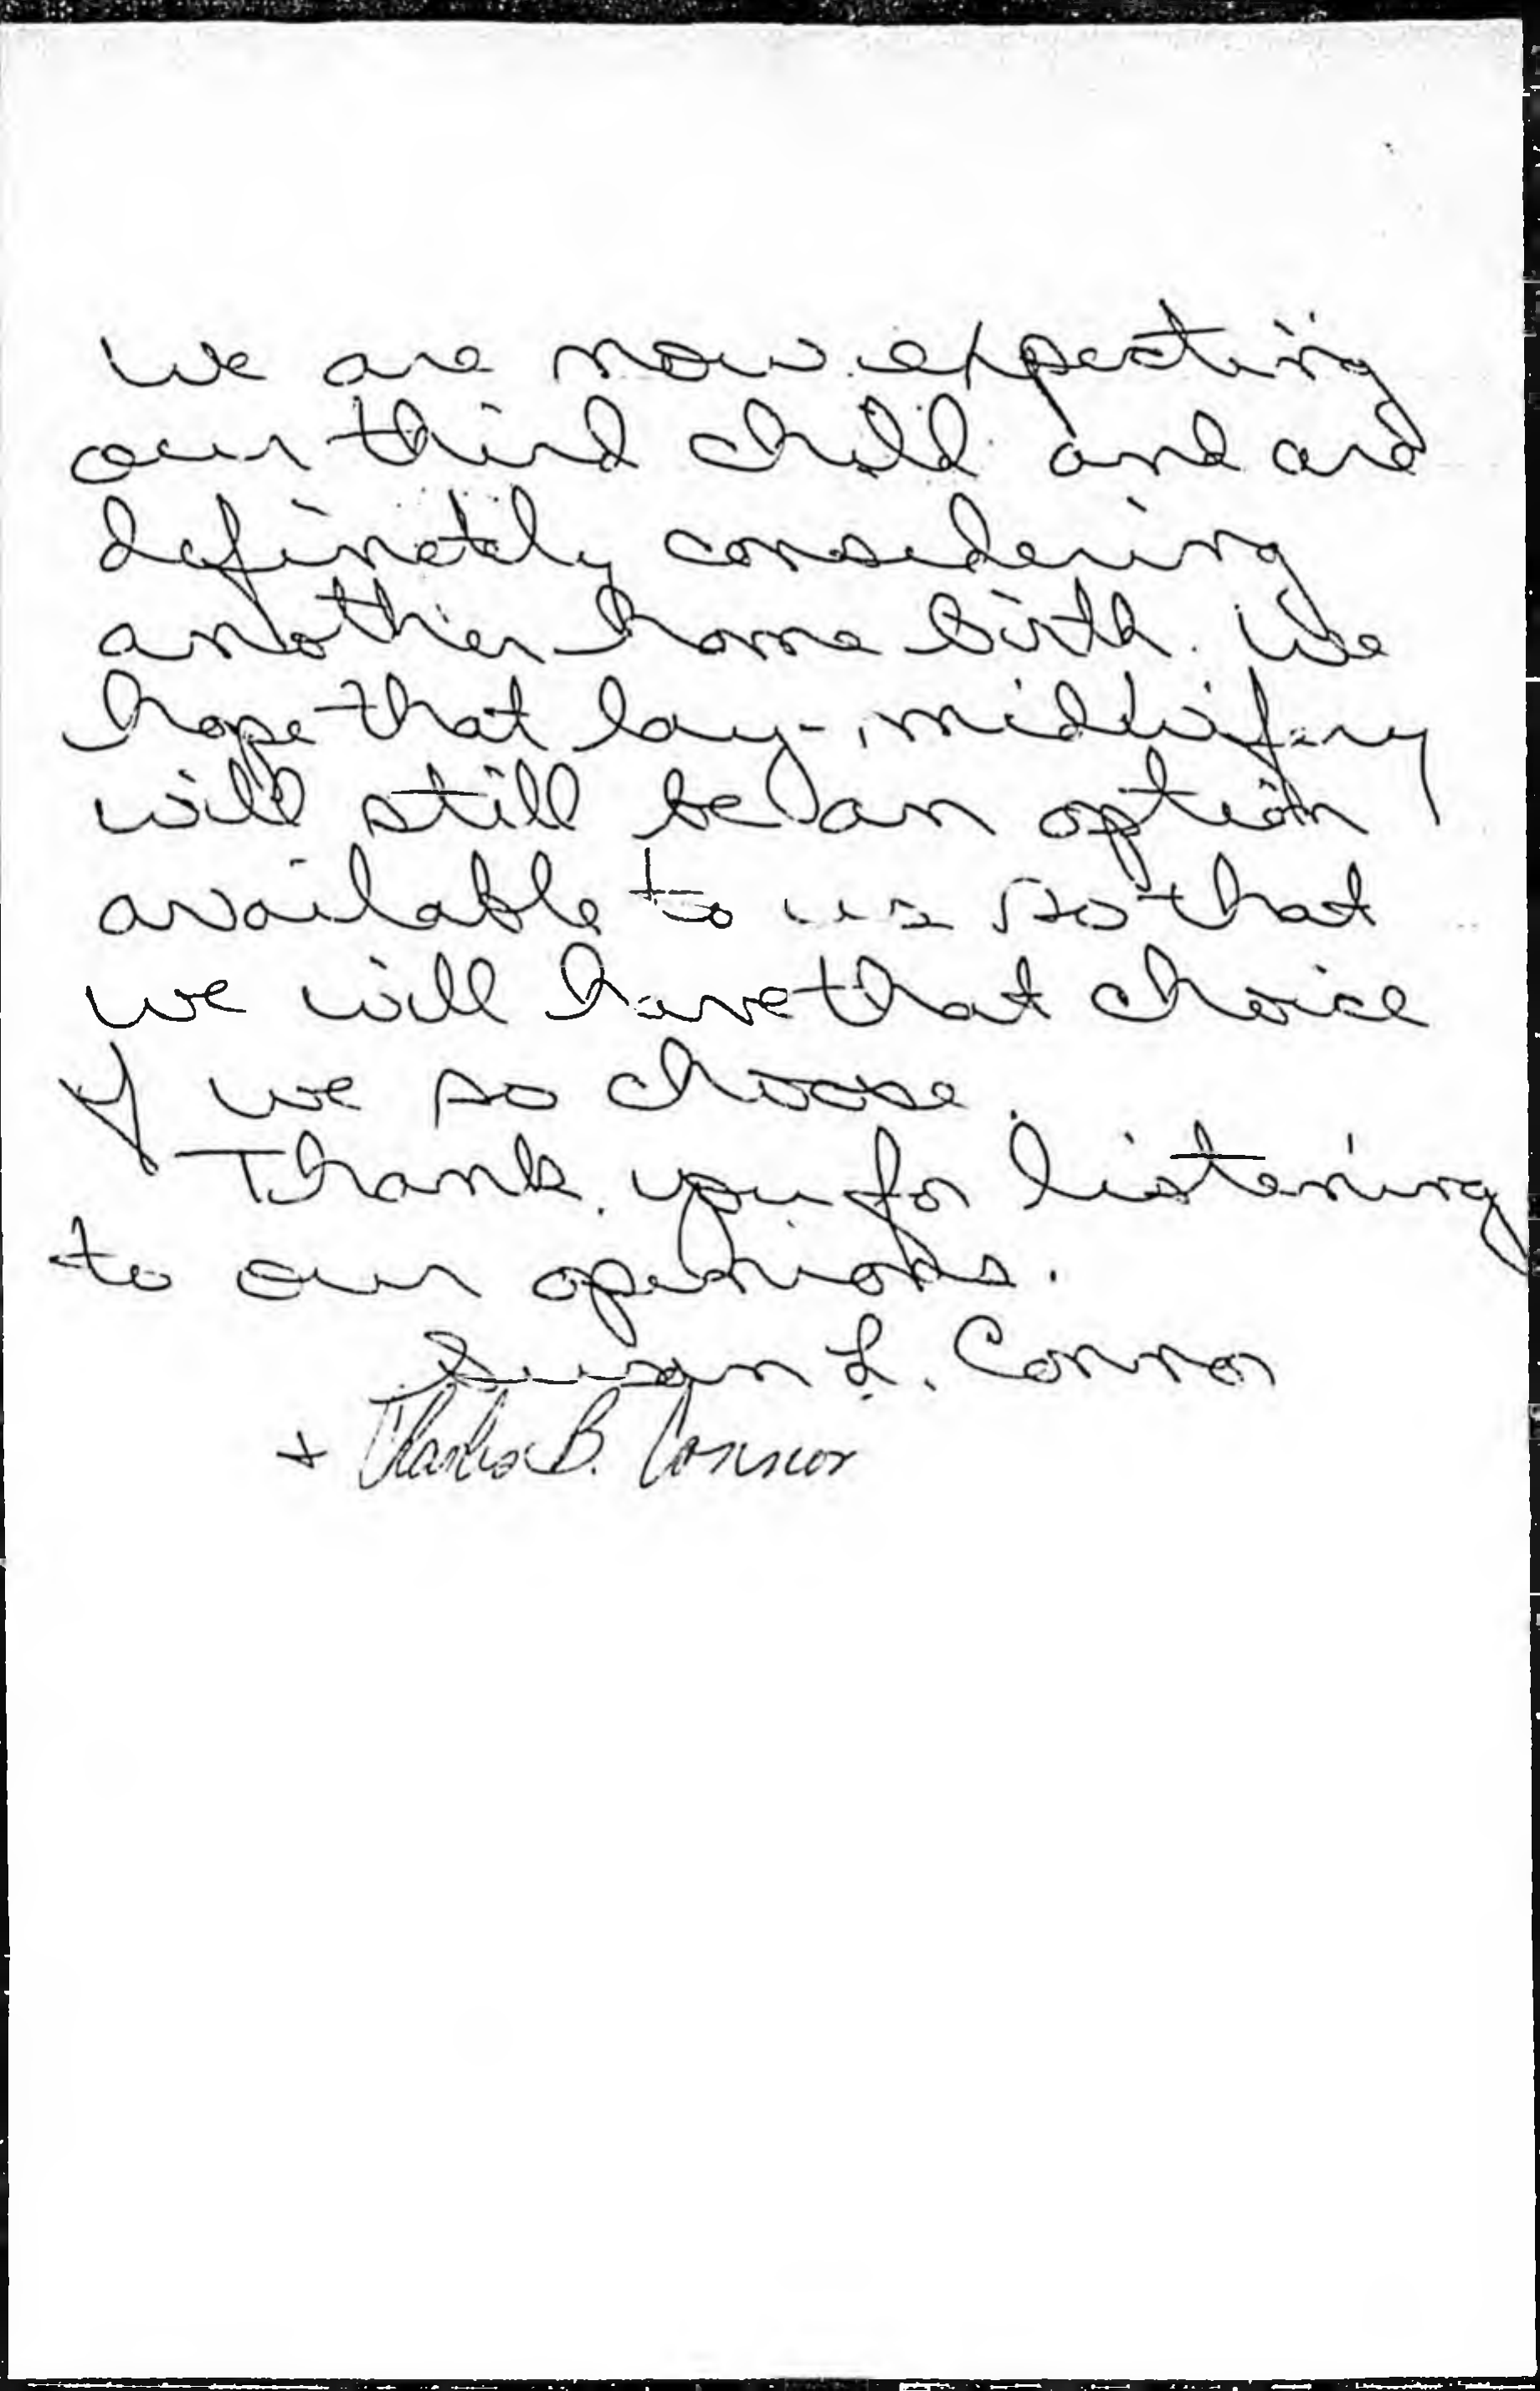 We are now expecting
our third child and are
definetely considering
another home birth. We
hope that lay-midwifery
will still be an option
available to us so that
we will have that choice
if we so choose.
Thank you for listening
to our opinions.
Susan L. Connor
+ Charles B. Connor